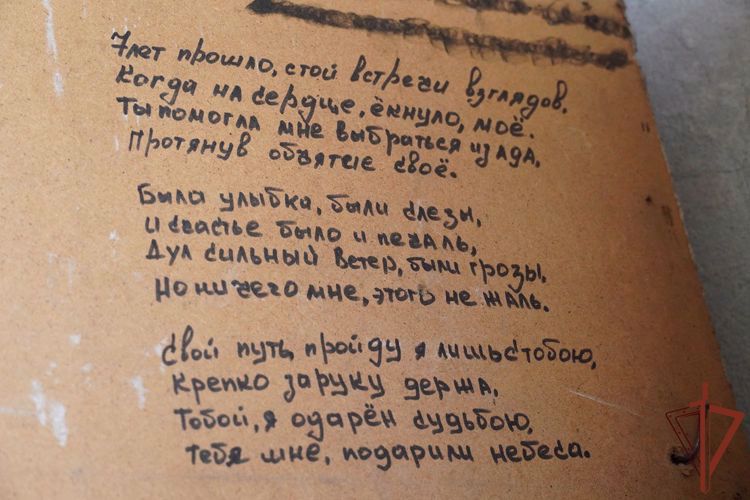 7лет прошло, стой встречи взглядов.
Когда на сердце, ёкнуло, моё.
Ты помогла мне выбраться из ада,
Протянув объятие своё.
Была улыбка, были слезы,
и счастье было и печаль,
Дул сильный ветер, были грозы,
Но ничего мне, этого не жаль.
Свой путь, пройду я лишь стобою,
Крепко за руку держа,
Тобой, я одарён судьбою,
Тебя мне, подарили небеса.